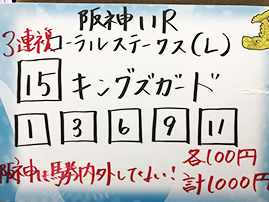 阪神11R
3連複 コーラルステークス(L)
15 キングズガード
1 3 6 9 11
阪神は馬券内外してない!
各100円
計1000円